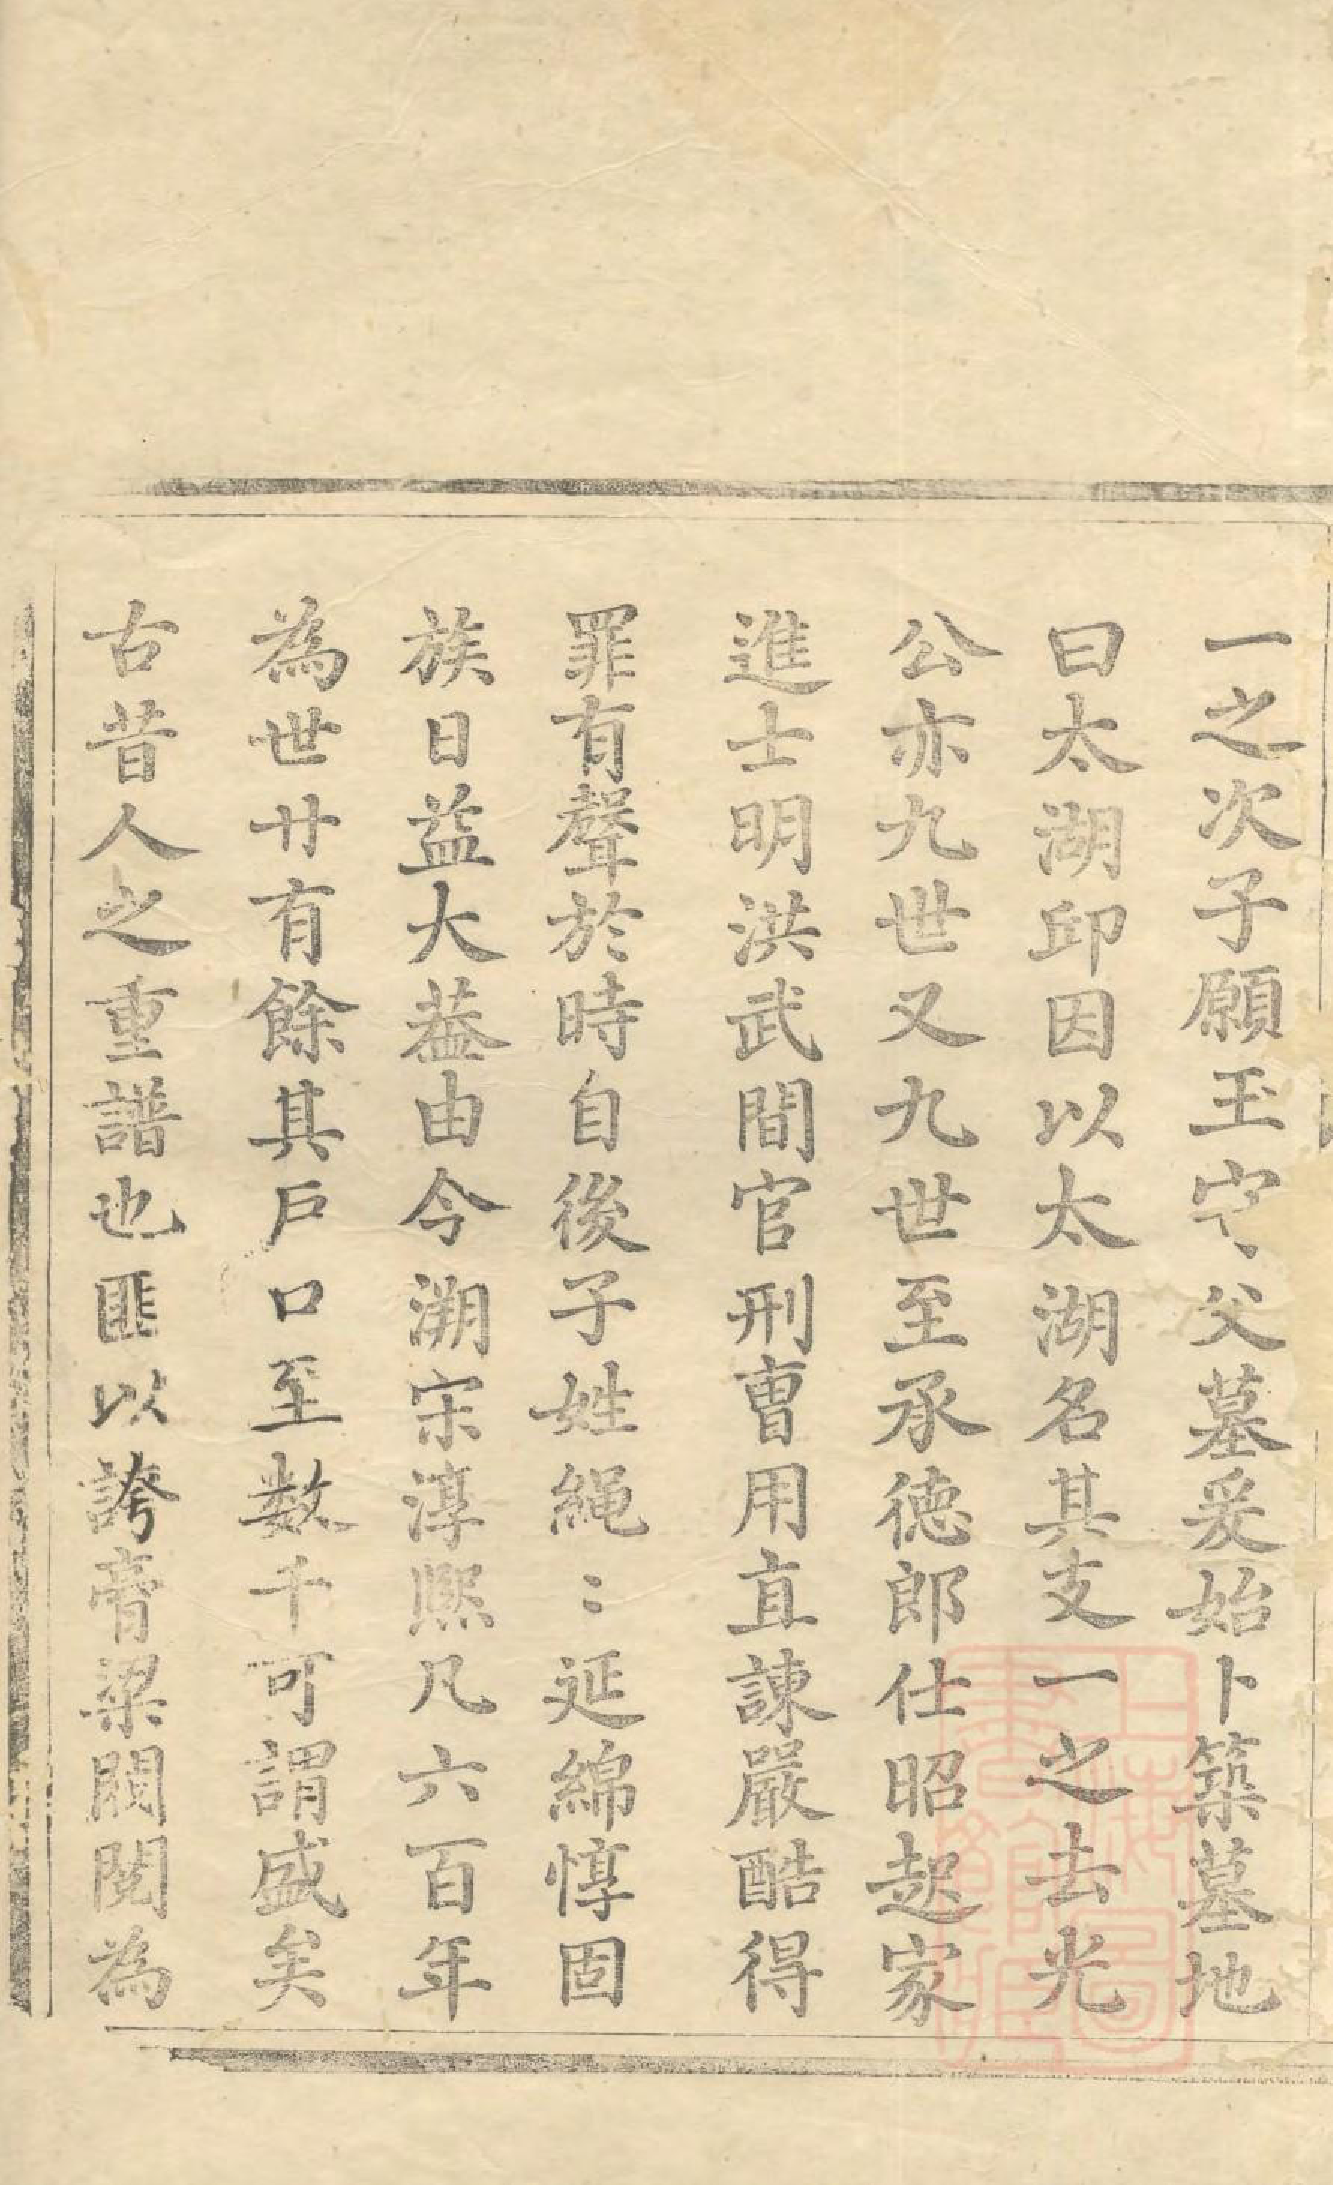 一之次子願玉守父墓爰始卜築墓地
曰太湖邱因以太湖名其支一之去光
公亦九世又九世至承德郎仕昭起家
進士明洪武間官刑曺用直諫嚴酷得
罪有聲於時自後子姓繩〻延綿惇固
族日益大葢由今溯宋淳熈凡六百年
為世廿有餘其戶口至数千可謂盛矣
古昔人之重譜也匪以誇膏粱閥閱為
上海圖書館藏